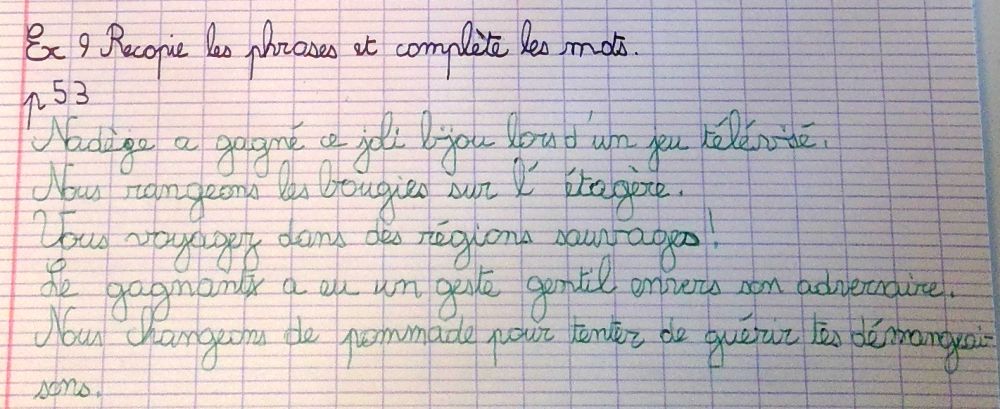 Ex 9 Recopie les phrases et complète les mots.
p 53
Nadège a gagné ce joli bijou lors d'un jeu télévisé.
Nous rangeons les bougies sur l'étagère.
Vous voyagez dans des régions sauvages!
Le gagnant a eu un geste gentil envers son adversaire.
Nous changeons de pommade pour tenter de guérir tes démangeai-
sons.